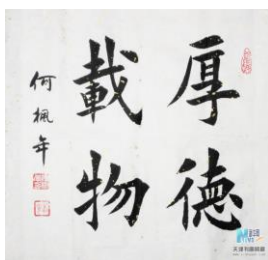 厚德
載物
何楓年